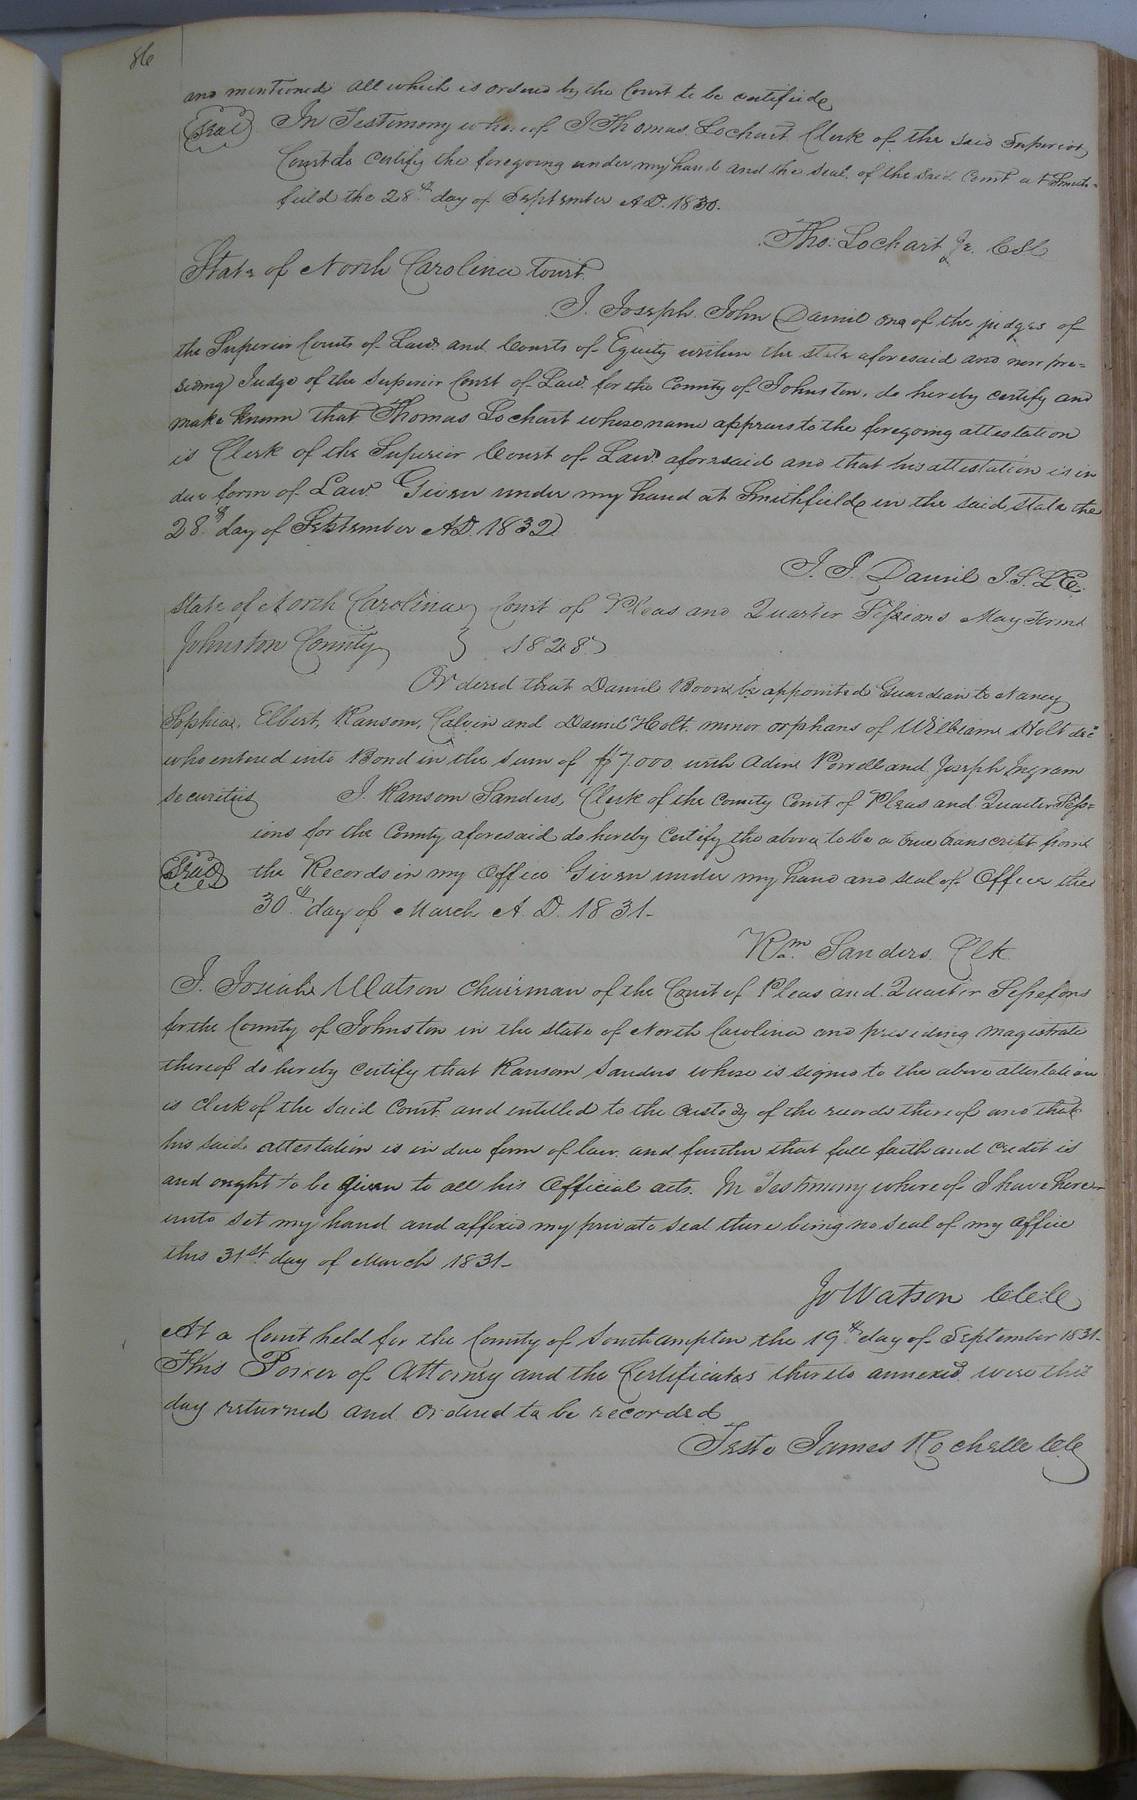 86
and mentioned all which is ordered by the Court to be certified
Seal In Testimony whereof I Thomas Lochart Clerk of the said Superior
Court do certify the foregoing under my hand and the seal of the said Court at Smith=
field the 28th day of September A.D. 1830.
Tho: Lochart Jr. CSC
State of North Carolina Court.
I. Joseph John Daniel one of the judges of
the Superior Courts of Law and Courts of Equity within the state aforesaid and now pre=
siding Judge of the Superior Court of Law for the County of Johnston, do hereby certify and
make known that Thomas Lochart whose name appears to the foregoing attestation
is Clerk of the Superior Court of Law aforesaid and that his attestation is in
due form of Law. Given under my hand at Smithfield in the said state the
28th day of September A.D. 1832
J. J. Daniel J.S.L.E.
State of North Carolina } Court of Pleas and Quarter Sessions May Term
Johnston County } 1828
Ordered that Daniel Boon be appointed Guardian to Nancy
Sophia, Elbert, Ransom, Calvin and Daniel Holt minor orphans of William Holt decd
who entered into Bond in the sum of $7.000 with Adin Powell and Joseph Ingram
securities I. Ransom Sanders, Clerk of the County Court of Pleas and Quarter Sess=
ions for the County aforesaid do hereby certify the above to be a true transcript from
Seal the Records in my Office Given under my hand and seal of Office the
30th day of March A.D. 1831-
Ram Sanders. Clk
I. Josiah Watson Chairman of the Court of Pleas and Quarter Sessions
for the County of Johnston in the state of North Carolina and presiding magistrate
thereof do hereby certify that Ransom Sanders whose is signed to the above attestation
is clerk of the said Court and entitled to the custody of the records thereof and that
his said attestation is in due form of law and further that full faith and credit is
and ought to be given to all his Official acts. In Testimony whereof I have here
unto set my hand and affixed my private seal there being no seal of my office
this 31st day of March 1831-
Jo Watson
At a Court held for the County of Southampton the 19th day of September 1831-
This Power of Attorney and the Certificates thereto annexed were this
day returned and Ordered to be recorded
Teste James Rochelle CC